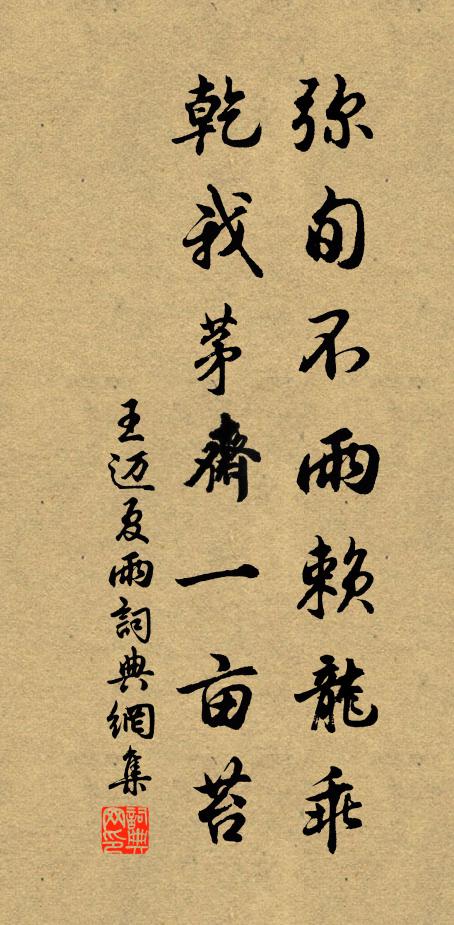 弥旬不雨赖龍乖
乾我茅齋一亩苔
王迈夏雨詞典網集
詞典網印